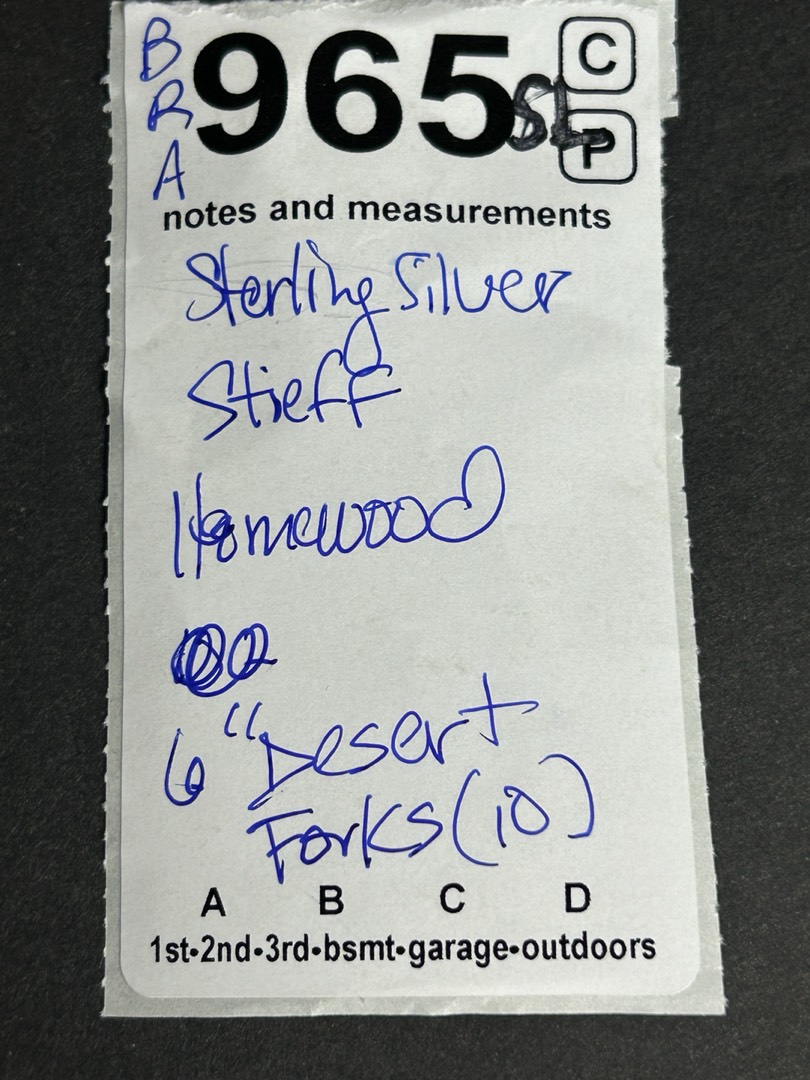 BRA
965SL
C
P
notes and measurements
Sterling Silver
Stieff
Homewood
6" Desert
Forks (10)
A B C D
1st•2nd•3rd•bsmt•garage•outdoors